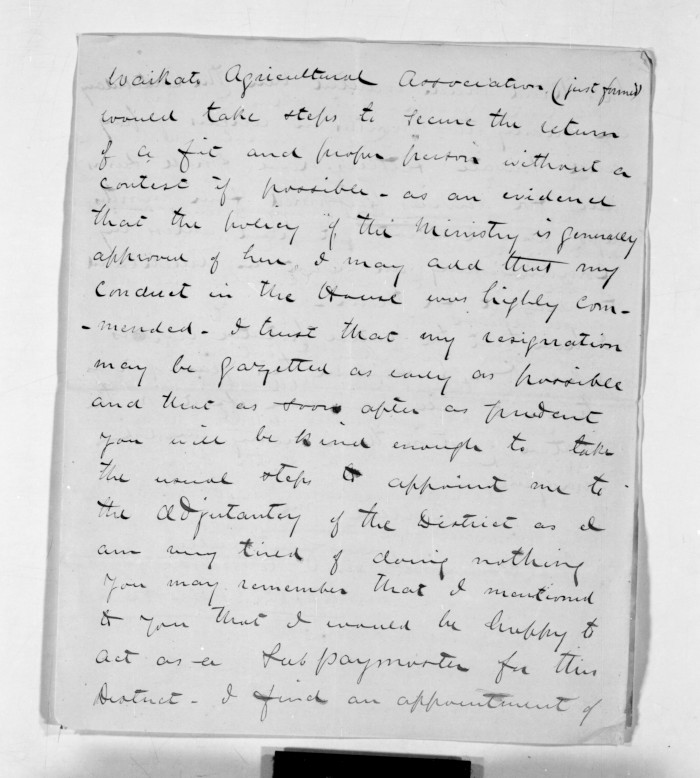 Waikato Agricultural Association (just formed)
would take steps to secure the return
of a fit and proper person without a
contest if possible - as an evidence
that the policy of the Ministry is generally
approved of here I may add that my
conduct in the House was highly com-
-mended - I trust that my resignation
may be gazetted as early as possible
and that as soon after as prudent
you will be kind enough to take
the usual steps to appoint me to
the Adjutantcy of the District as I
am very tired of doing nothing
You may remember that I mentioned
to you that I would be happy to
act as a Sub paymaster for this
District - I find an appointment of